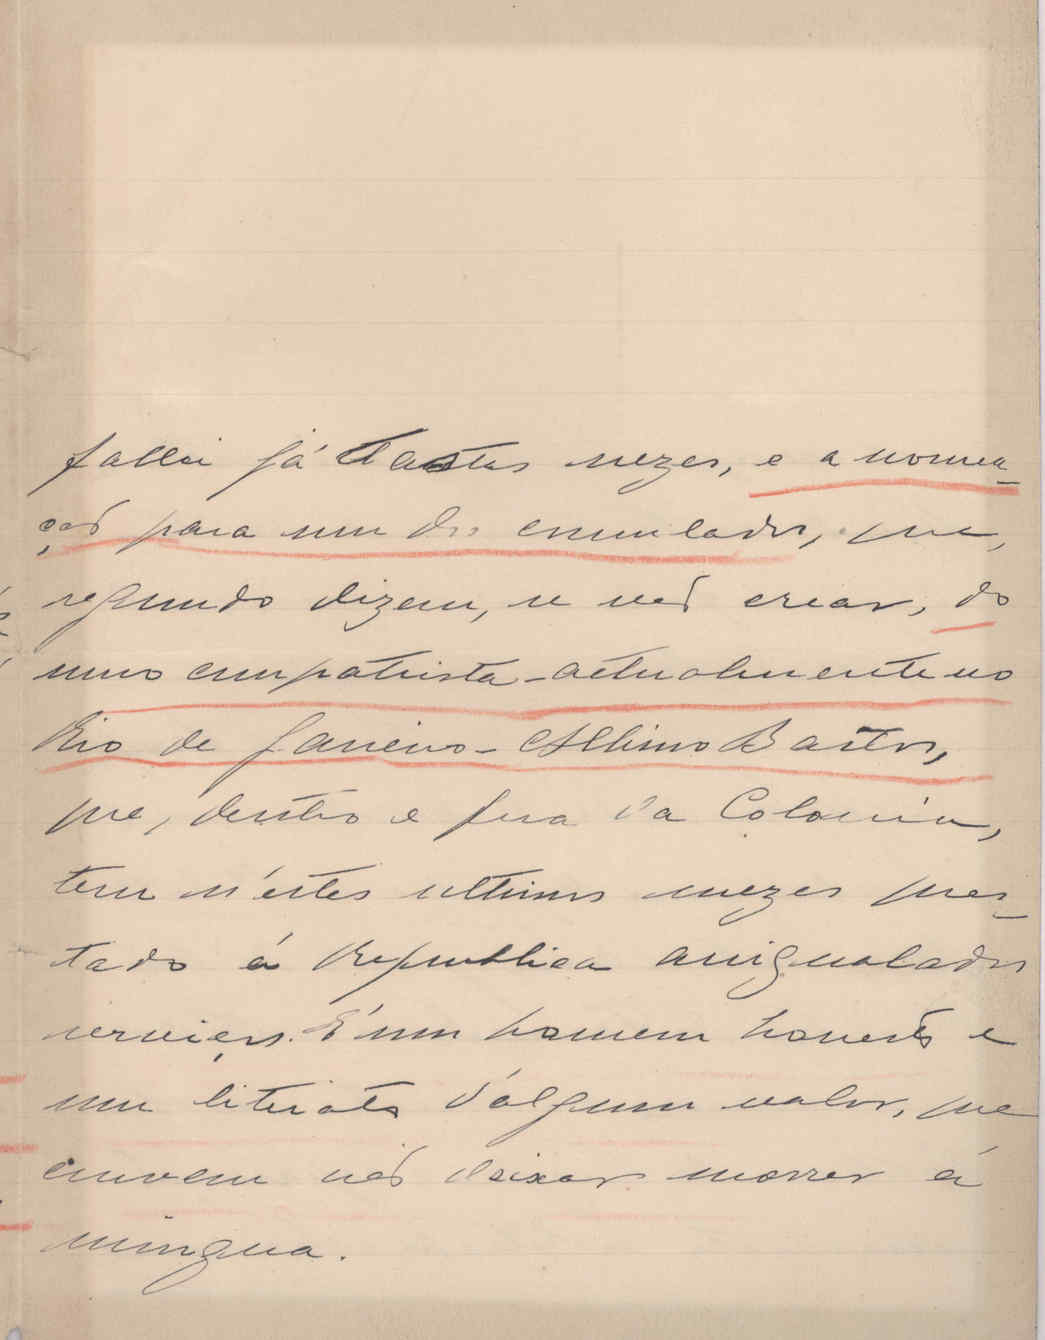 fallei já tantos mezes, e a nomea-
ção para um dos consulados, que,
segundo dizem, se vão crear, do
nosso compatriota - actualmente no
Rio de Janeiro - Albino Bastos,
que, dentro e fora da Colonia,
tem n'estes ultimos mezes pres-
tado á Republica assignalados
serviços. É um homem honesto e
um literato d'algum valor, que
convem não deixar morrer á
mingua.